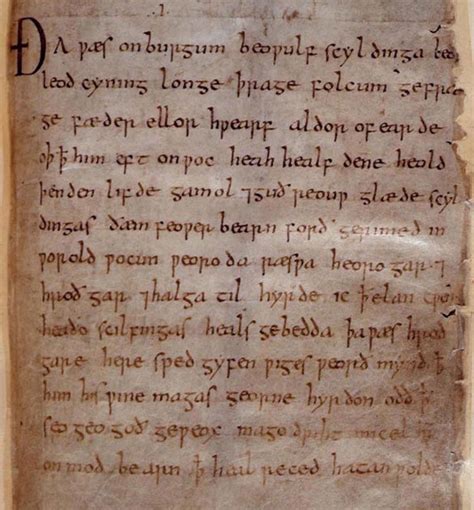 .I.
Ða ƿæs on burgum beoƿulf scyldinga
leod cyning longe þrage folcum gefræ
ge fæder ellor hƿearf aldor of earde
oþ ꝥ him eft onƿoc heah healf dene heold
þenden lifde gamol ⁊ guð reouƿ glæde scyl
dingas ðæm feoƿer bearn forð gerimed in
ƿorold ƿocun ƿeoroda ræsƿa heoro gar ⁊
hroð gar ⁊ halga til hyrde ic ꝥ elan cƿen
heaðo scilfingas heals gebedda þa ƿæs hroð
gare here sped gyfen ƿiges ƿeorð mynd ꝥ
him his ƿine magas georne hyrdon oðð ꝥ
seo geogoð geƿeox mago driht micel
on mod bearn ꝥ heal reced hatan ƿolde